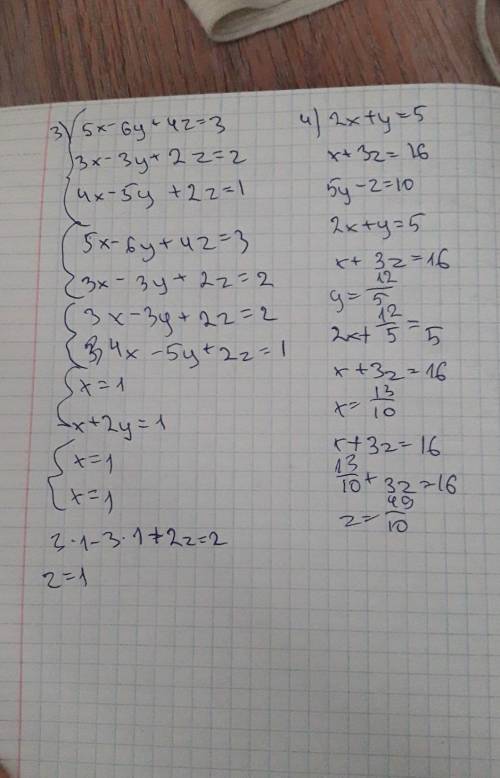 3) 5x-6y+4z=3
3x-3y+2z=2
4x-5y+2z=1
5x-6y+4z=3
3x-3y+2z=2
3x-3y+2z=2
4x-5y+2z=1
x=1
-x+2y=1
x=1
x=1
3·1-3·1+2z=2
z=1
4) 2x+y=5
x+3z=16
5y-z=10
2x+y=5
x+3z=16
y=12/5
2x+12/5=5
x+3z=16
x=13/10
x+3z=16
13/10+3z=16
z=49/10